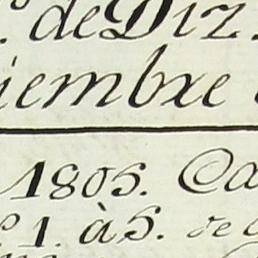 de Diz.
iembre
1805. Ca
1. à 5. de